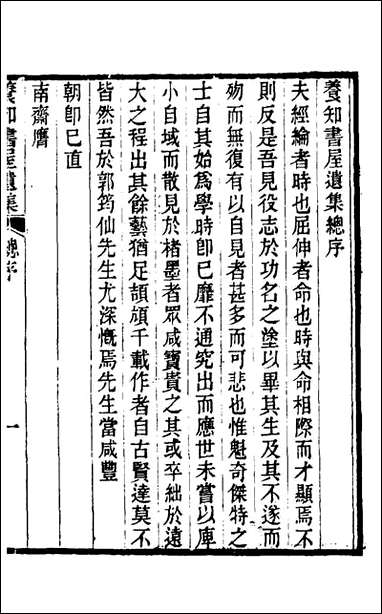 養知書屋遺集總序
夫經綸者時也屈伸者命也時與命相際而才顯焉不
則反是吾見役志於功名之塗以畢其生及其不遂而
歿而無復有以自見者甚多而可悲也惟魁奇傑特之
士自其始爲學時卽已靡不通究出而應世未嘗以庫
小自域而散見於楮墨者眾咸寶貴之其或卒絀於遠
大之程出其餘藝猶足頡頏千載作者自古賢達莫不
皆然吾於郭筠仙先生尤深慨焉先生當咸豐
朝卽已直
南齋膺
養知書屋遺集
總序
一